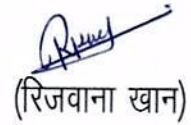 (रिजवाना खान)